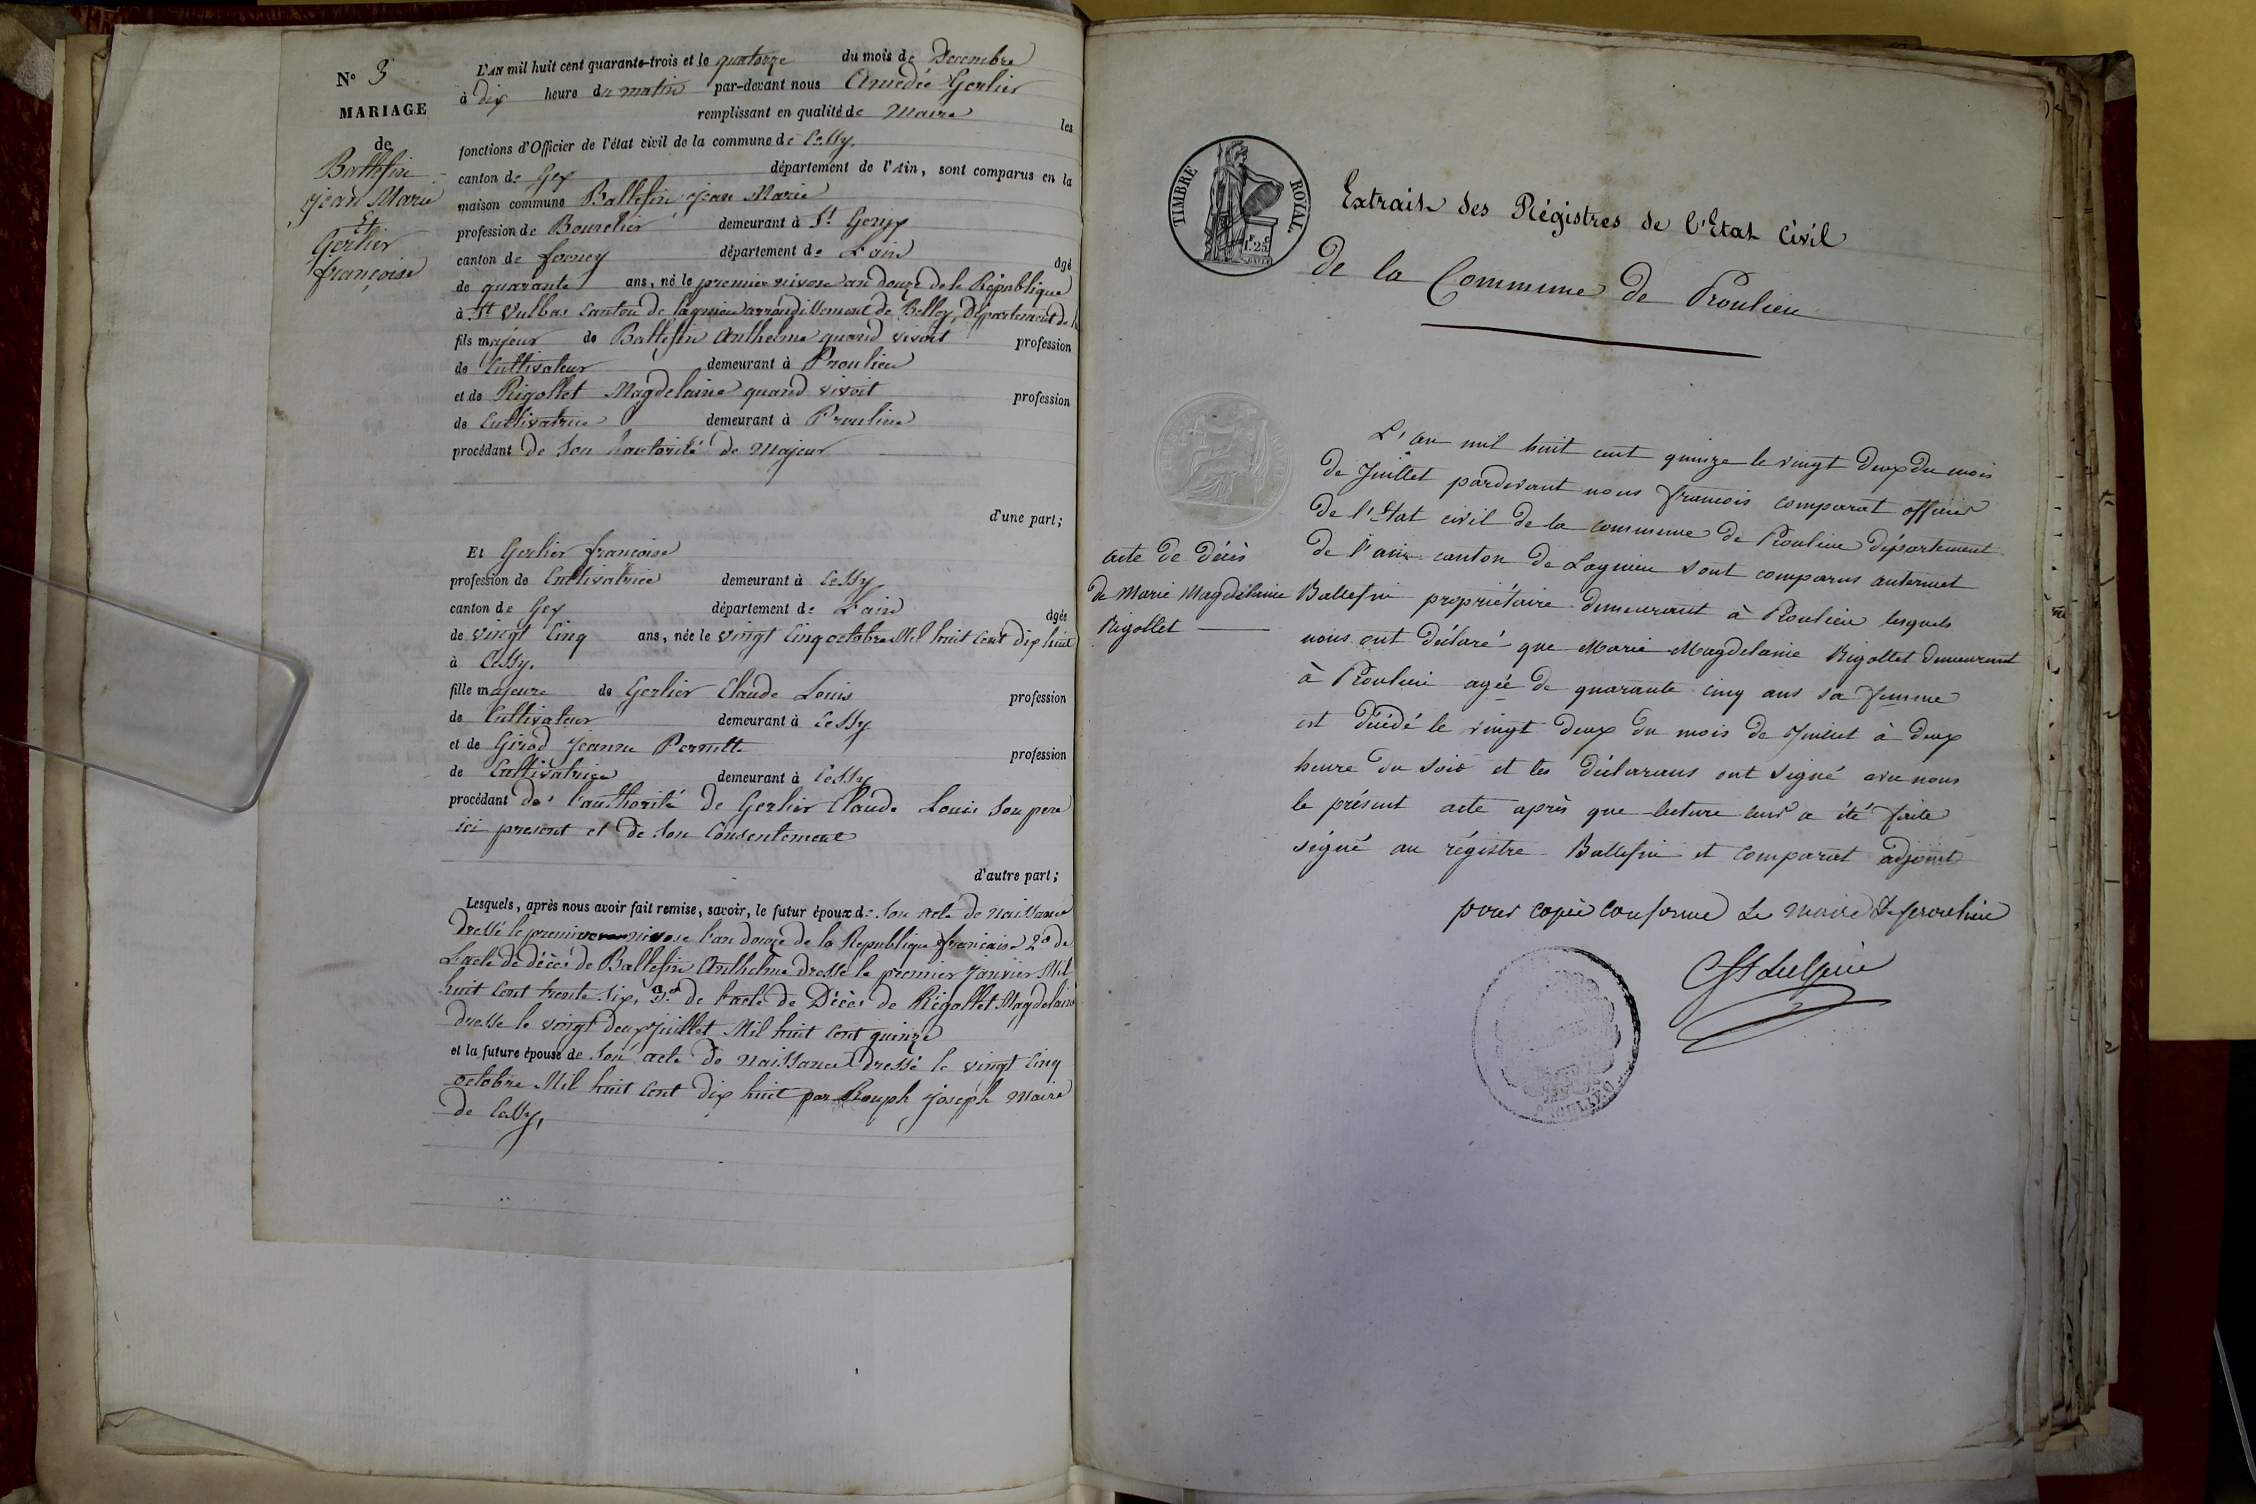 N° 3
MARIAGE
de
Ballefin
Jean Marie
Et
Gerlier
françoise
L'AN mil huit cent quarante-trois et le quatorze du mois de Decembre
à dix heure du matin par-devant nous Amedée Gerlier
remplissant en qualité de Maire les
fonctions d'Officier de l'état civil de la commune de Cessy,
canton de Gex département de l'Ain, sont comparus en la
maison commune Ballefin Jean Marie
profession de Bourelier demeurant à St Genix
canton de forney département de L'ain âgé
de quarante ans, né le premier nivose an douze de la République
à St Vulbas Canton de lagnieu arrondissement de Belley, Département de
fils majeur de Ballefin Anthelme quand vivoit profession
de Cultivateur demeurant à Proulieu
et de Rigollet Magdelaine quand vivoit profession
de Cultivatrice demeurant à Proulieu
procédant de son hautorité de Majeur
d'une part;
Et Gerlier françoise
profession de Cultivatrice demeurant à Cessy
canton de Gex département de L'ain âgée
de vingt Cinq ans, née le vingt Cinq octobre Mil huit Cent dix huit
à Cessy.
fille majeure de Gerlier Claude Louis profession
de Cultivateur demeurant à Cessy
et de Girod Jeanne Pernette profession
de Cultivatrice demeurant à Cessy
procédant de l'authorité de Gerlier Claude Louis son pere
ici present et de son Consentement
d'autre part;
Lesquels, après nous avoir fait remise, savoir, le futur époux de son acte de Naissance
Dressé le premier nivose l'an douze de la Republique française 2° de
L'acte de décès de Ballefin Anthelme dressé le premier Janvier Mil
huit Cent trente six, 3° de l'acte de Décès de Rigollet Magdelaine
dresse le vingt deux Juillet Mil huit Cent quinze
et la future épouse de son acte de naissance dressé le vingt Cinq
octobre Mil huit Cent dix huit par Rouph Joseph Maire
de Cessy,
TIMBRE ROYAL
1F 25C
Extrait des Régistres de l'Etat Civil
De la Commune de Proulieu
acte de décès
de Marie Magdelaine
Rigollet
L'an mil huit cent quinze le vingt deux du mois
de Juillet pardevant nous francois comparat officier
de l'Etat civil de la commune de Proulieu département
de l'ain canton de Lagnieu sont comparus
Ballefin propriétaire demeurant à Proulieu lesquels
nous ont déclaré que Marie Magdelaine Rigollet demeurant
à Proulieu agée de quarante cinq ans sa femme
est décédé le vingt deux du mois de Juillet à deux
heure du soir et les déclarans ont signé avec nous
le présent acte après que lecture leur a été faite
signé au régistre Ballefin et Comparat adjoint
pour copie conforme Le Maire de proulieu